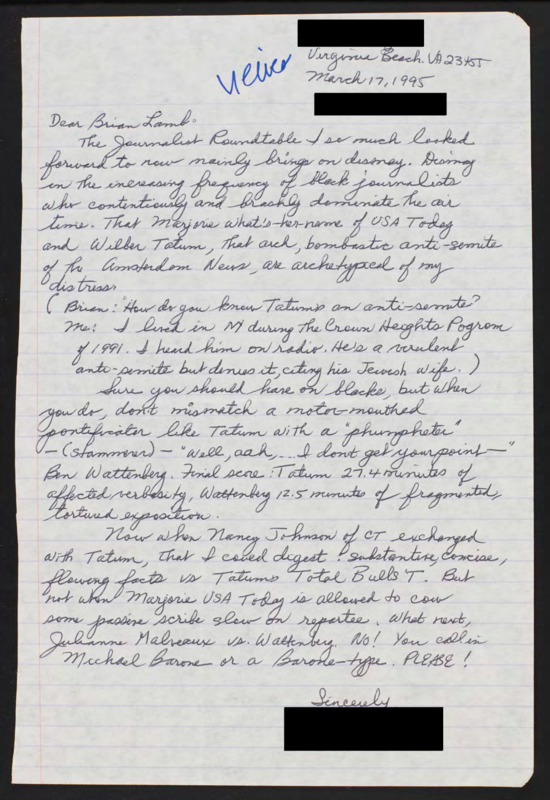 Virginia Beach, VA 23455
March 17, 1995
Dear Brian Lamb:
The Journalist Roundtable I so much looked
forward to now mainly brings on dismay. Dismay
in the increasing frequency of black journalists
who contentiously and brashly dominate the air
time. That Marjorie what's-her-name of USA Today
and Wilber Tatum, that arch, bombastic anti-semite
of the Amsterdam News, are archetypical of my
distress.
(Brian: "How do you know Tatum's an anti-semite?
Me: I lived in NY during the Crown Heights Pogrom
of 1991. I heard him on radio. He's a virulent
anti-semite but denies it, citing his Jewish wife.)
Sure you should have on blacks, but when
you do, don't mismatch a motor-mouthed
pontificator like Tatum with a "phumpheter"
-(stammerer) - "Well, aah, ... I don't get your point—"
Ben Wattenberg. Final score: Tatum 27.4 minutes of
affected verbosity, Wattenberg 12.5 minutes of fragmented,
tortured exposition.
Now when Nancy Johnson of CT exchanged
with Tatum, that I could digest: substantive, concise,
flowing facts vs Tatum's Total Bulls'T. But
not when Marjorie USA Today is allowed to cow
some passive scribe slow on repartee. What next,
Julianne Malveaux vs. Wattenberg. NO! You call in
Michael Barone or a Barone-type. PLEASE!
Sincerely